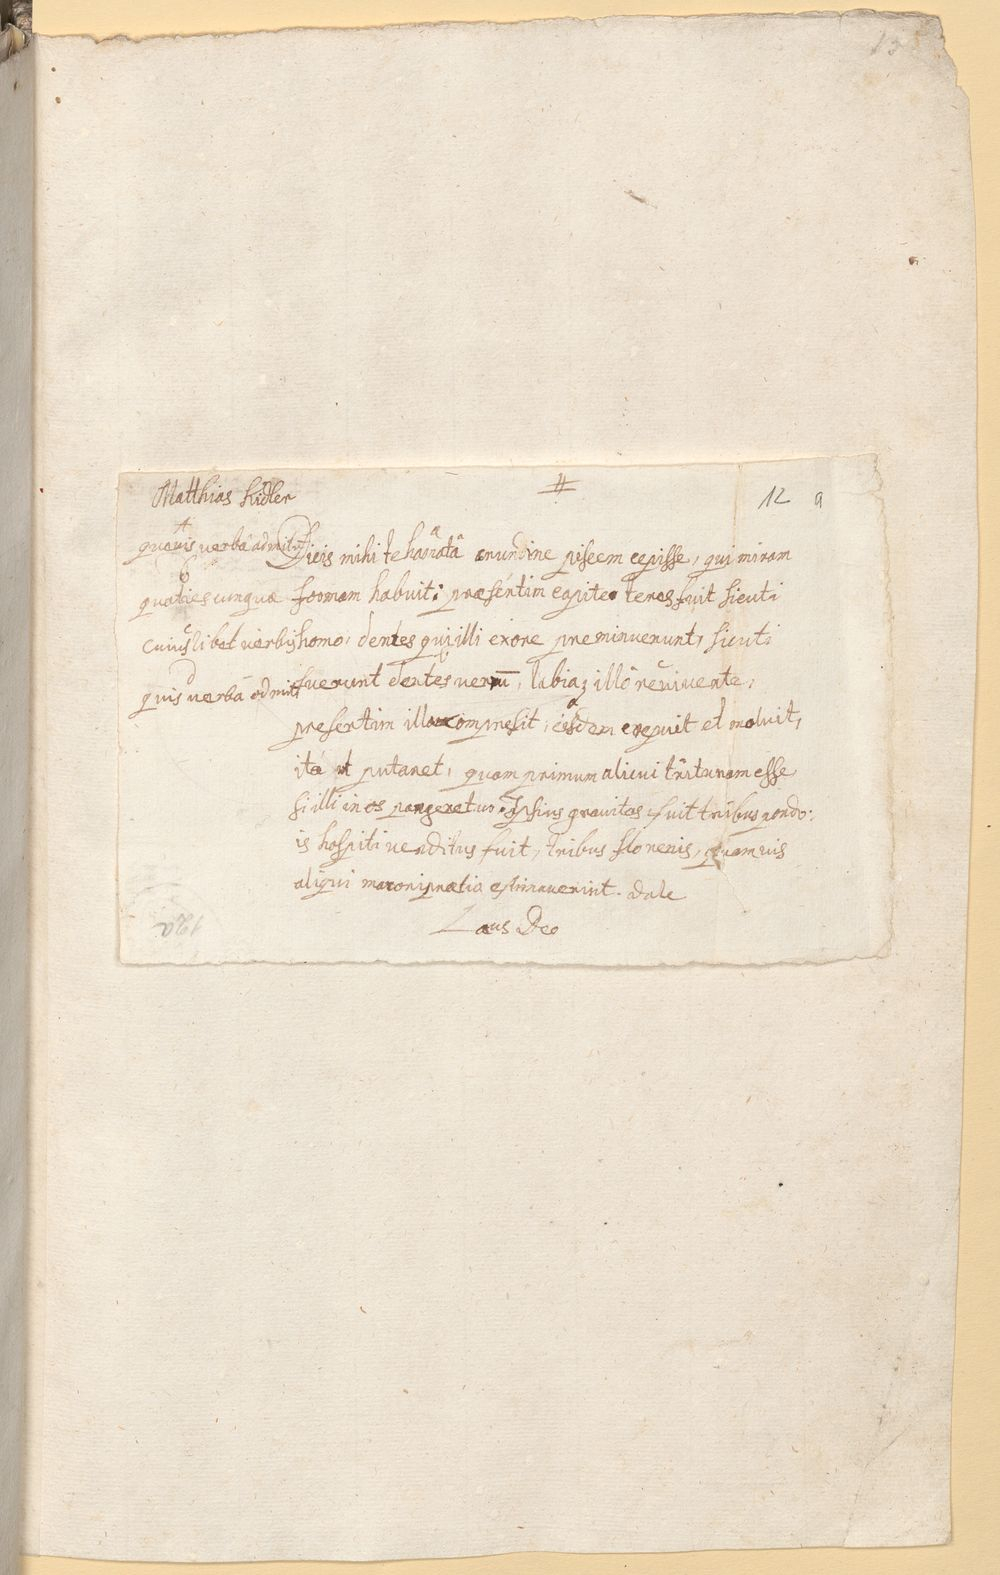 13
Matthias Hidler
#
12 a
a
quavis verba admitit
Dicis mihi te hamatâ arundine piscem cepisse, qui miram
b
quoties cunque formam habuit; præsertim capite teres fuit sicuti
c
cuiuslibet verbis homo, dentes qui illi ex ore preminuerunt, sicuti
d
quis verba admitit fuerunt dentes verrū, labiaq illô reviviente,
presertim illa compresit, eadem exeruit et moluit,
ita ut putaret, quam primum alicui tristuram esse
si illi in os pangeretur. Ipsius gravitas fuit tribus pondo:
is hospiti venditus fuit, tribus florenis, quamvis
aliqui maiori prætio estimaverint. Vale
Laus Deo